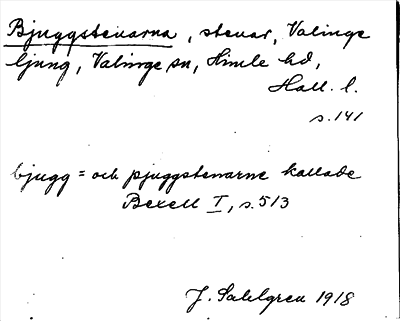 Bjuggstenarna, stenar, Valinge
ljung, Valinge sn, Himle hd,
Hall. l.
s. 141
bjugg = och pjuggstenarne kallade
Bexell I, s. 513
J. Sahlgren 1918